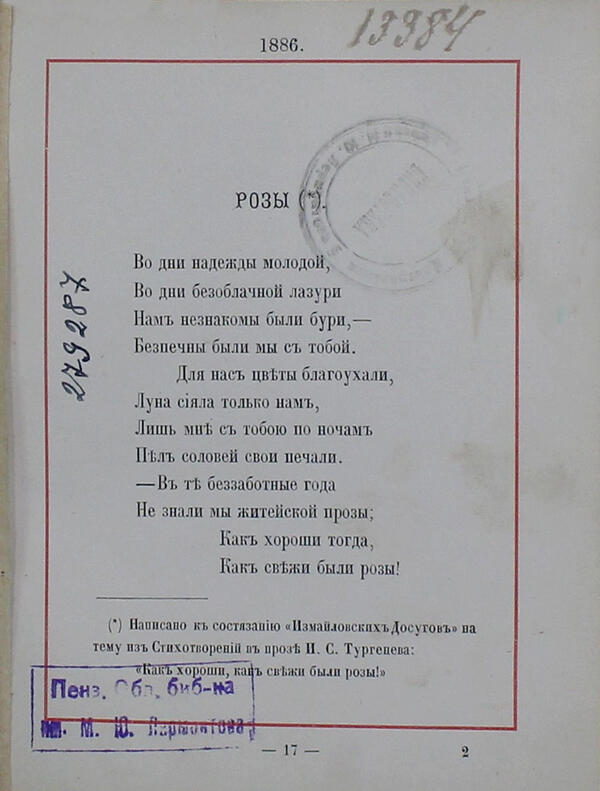 1886.
13384
РОЗЫ (*).
Во дни надежды молодой,
Во дни безоблачной лазури
Намъ незнакомы были бури,—
Безпечны были мы съ тобой.
Для насъ цвѣты благоухали,
Луна сіяла только намъ,
Лишь мнѣ съ тобою по ночамъ
Пѣлъ соловей свои печали.
—Въ тѣ беззаботные года
Не знали мы житейской прозы;
Какъ хороши тогда,
Какъ свѣжи были розы!
279287
(*) Написано къ состязанію «Измайловскихъ Досуговъ» на
тему изъ Стихотвореній въ прозѣ И. С. Тургенева:
«Какъ хороши, какъ свѣжи были розы!»
Пенз. Обл. биб-ка
им. М. Ю. Лермонтова
— 17 —
2